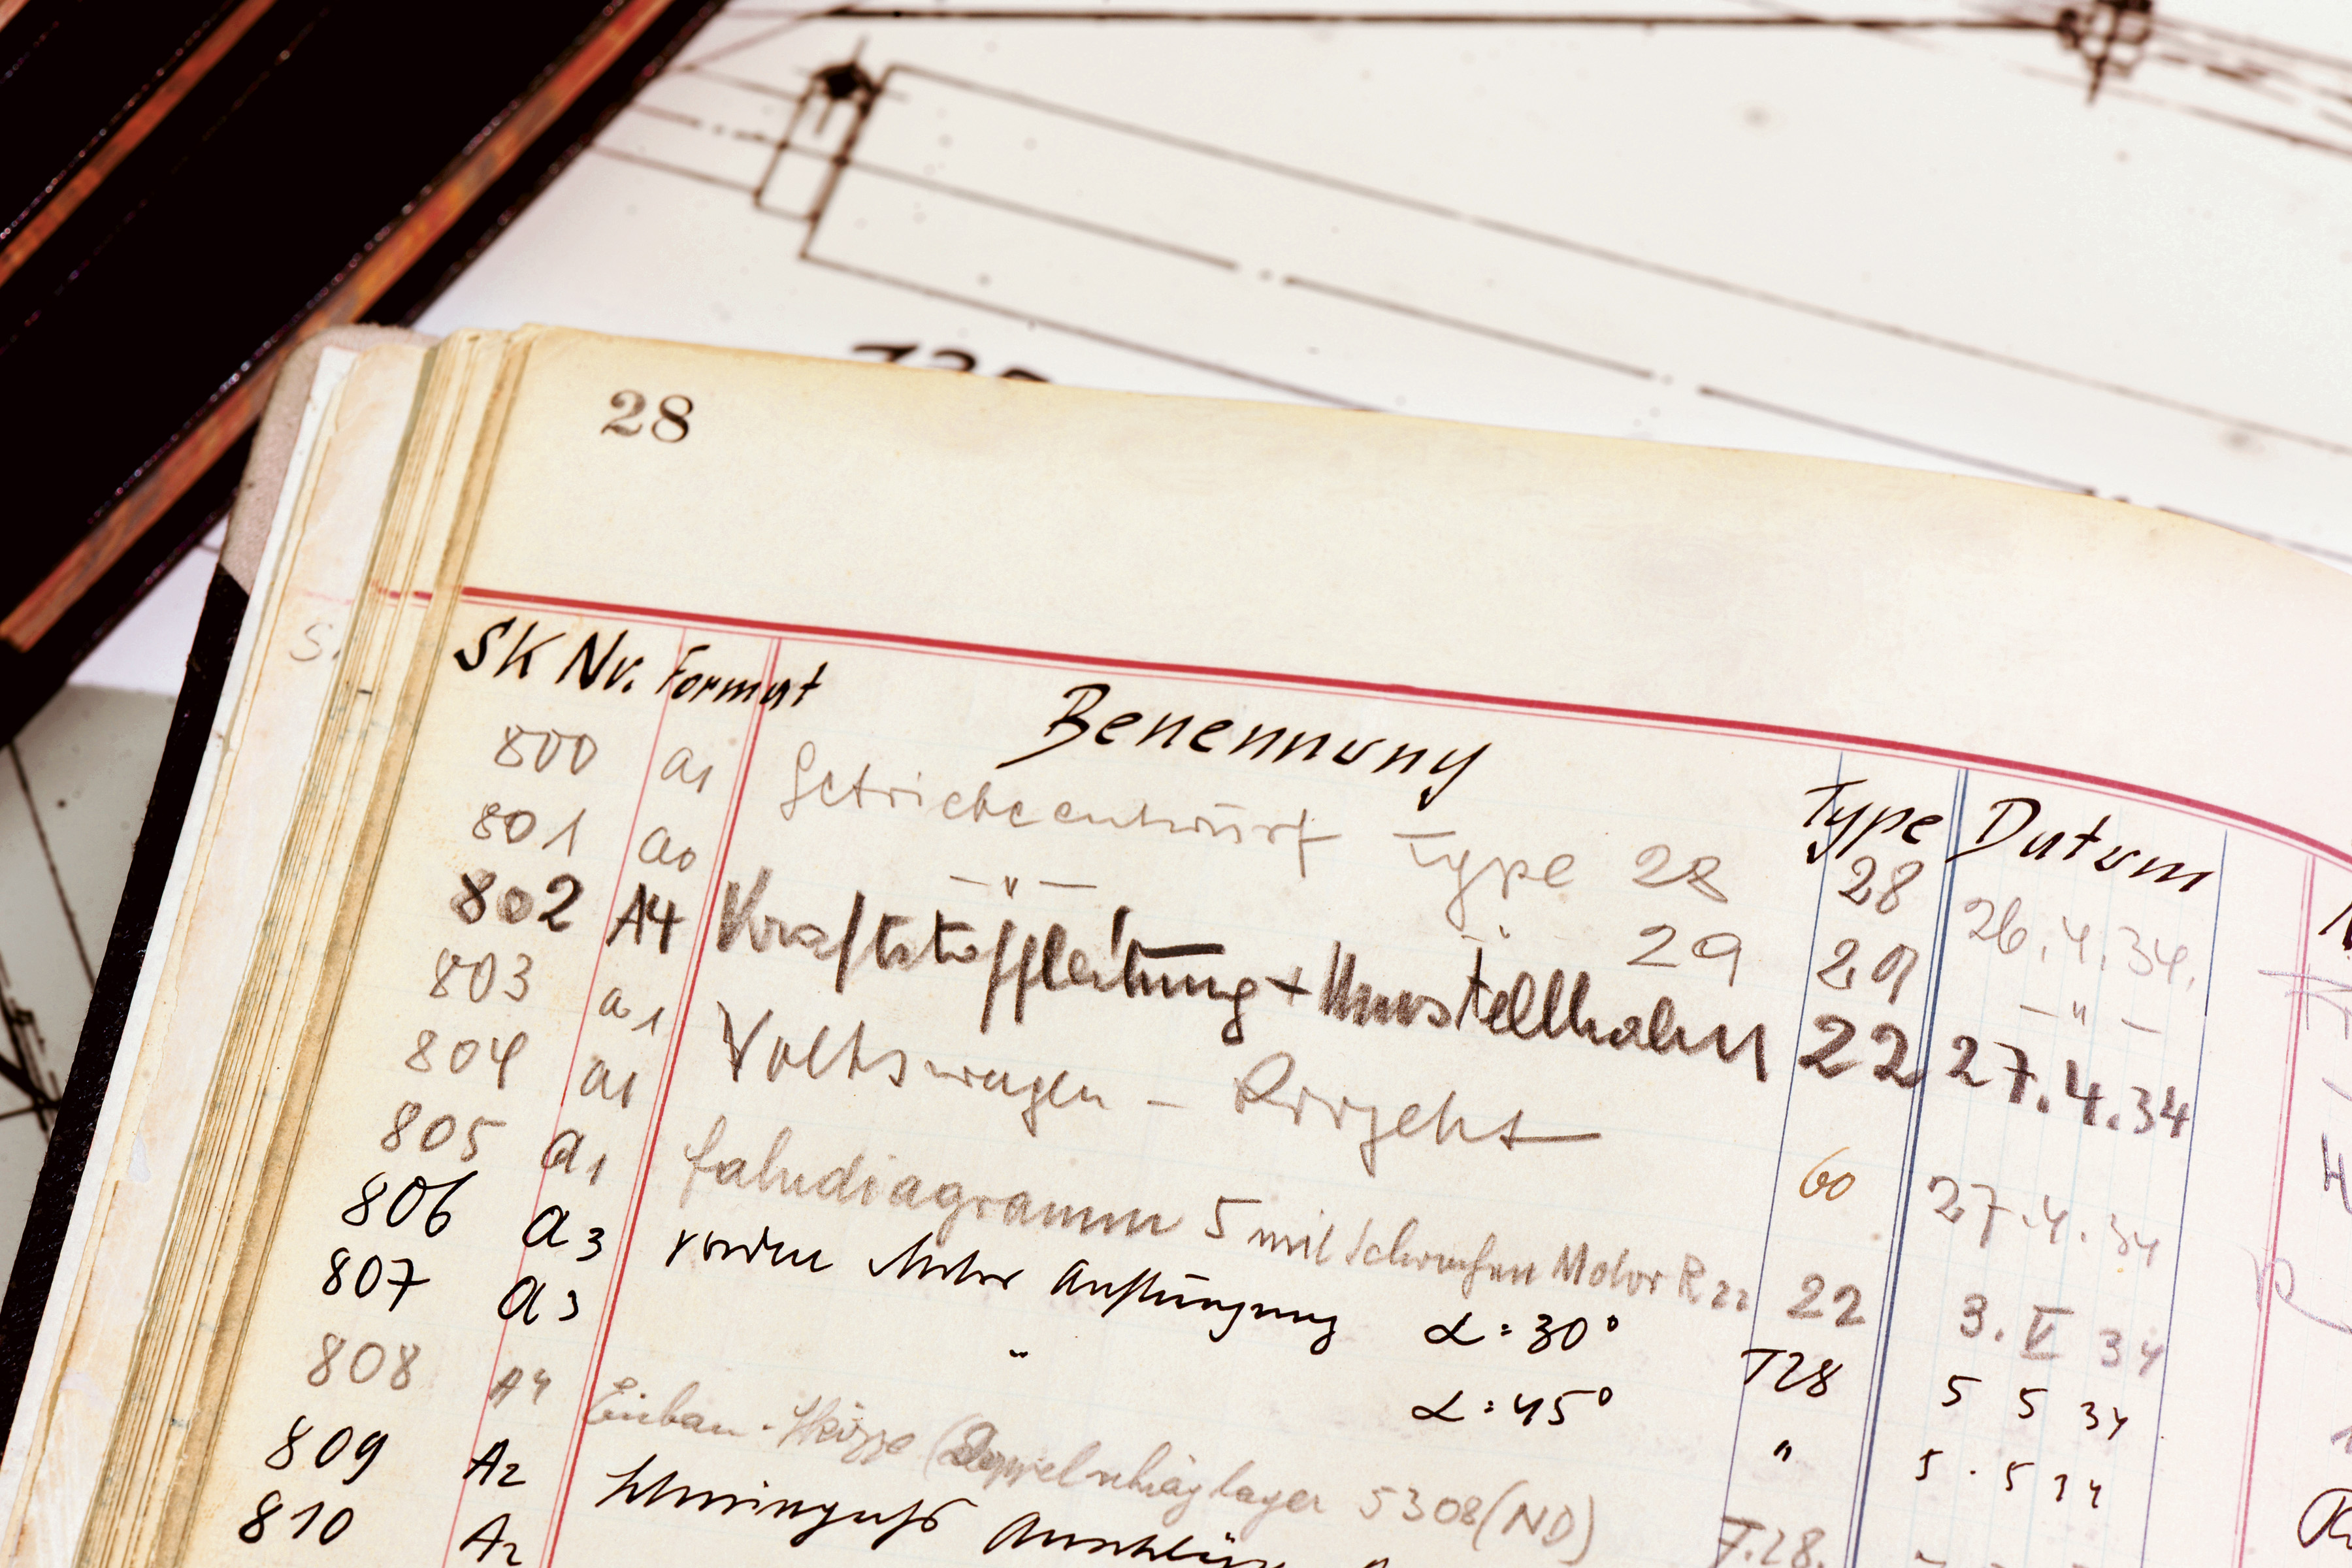 28
SK Nr. Format Benennung Type Datum
800 a1 Getriebeentwurf Type 28 28 26.4.34.
801 a0 —"— " 29 29 —"—
802 A4 Kraftstoffleitung + Umstellhahn 22 27.4.34
803 a1 Volkswagen - Projekt 60 27.4.34
804 a1 Fahrdiagramm 5 mit Motor R 22 22 3. V 34
805 a1
806 a3 vordere Motor Aufhängung α = 30° T28 5 5 34
807 a3 " α = 45° " 5 . 5 34
808 A4 Einbau-Skizze (Doppelschräglager 5308 (ND) T.28.
809 A2
810 A2